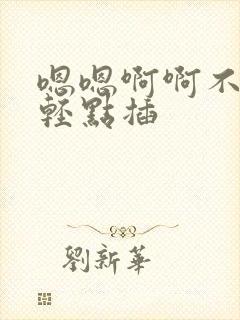 嗯嗯啊啊不
輕點插
劉新華